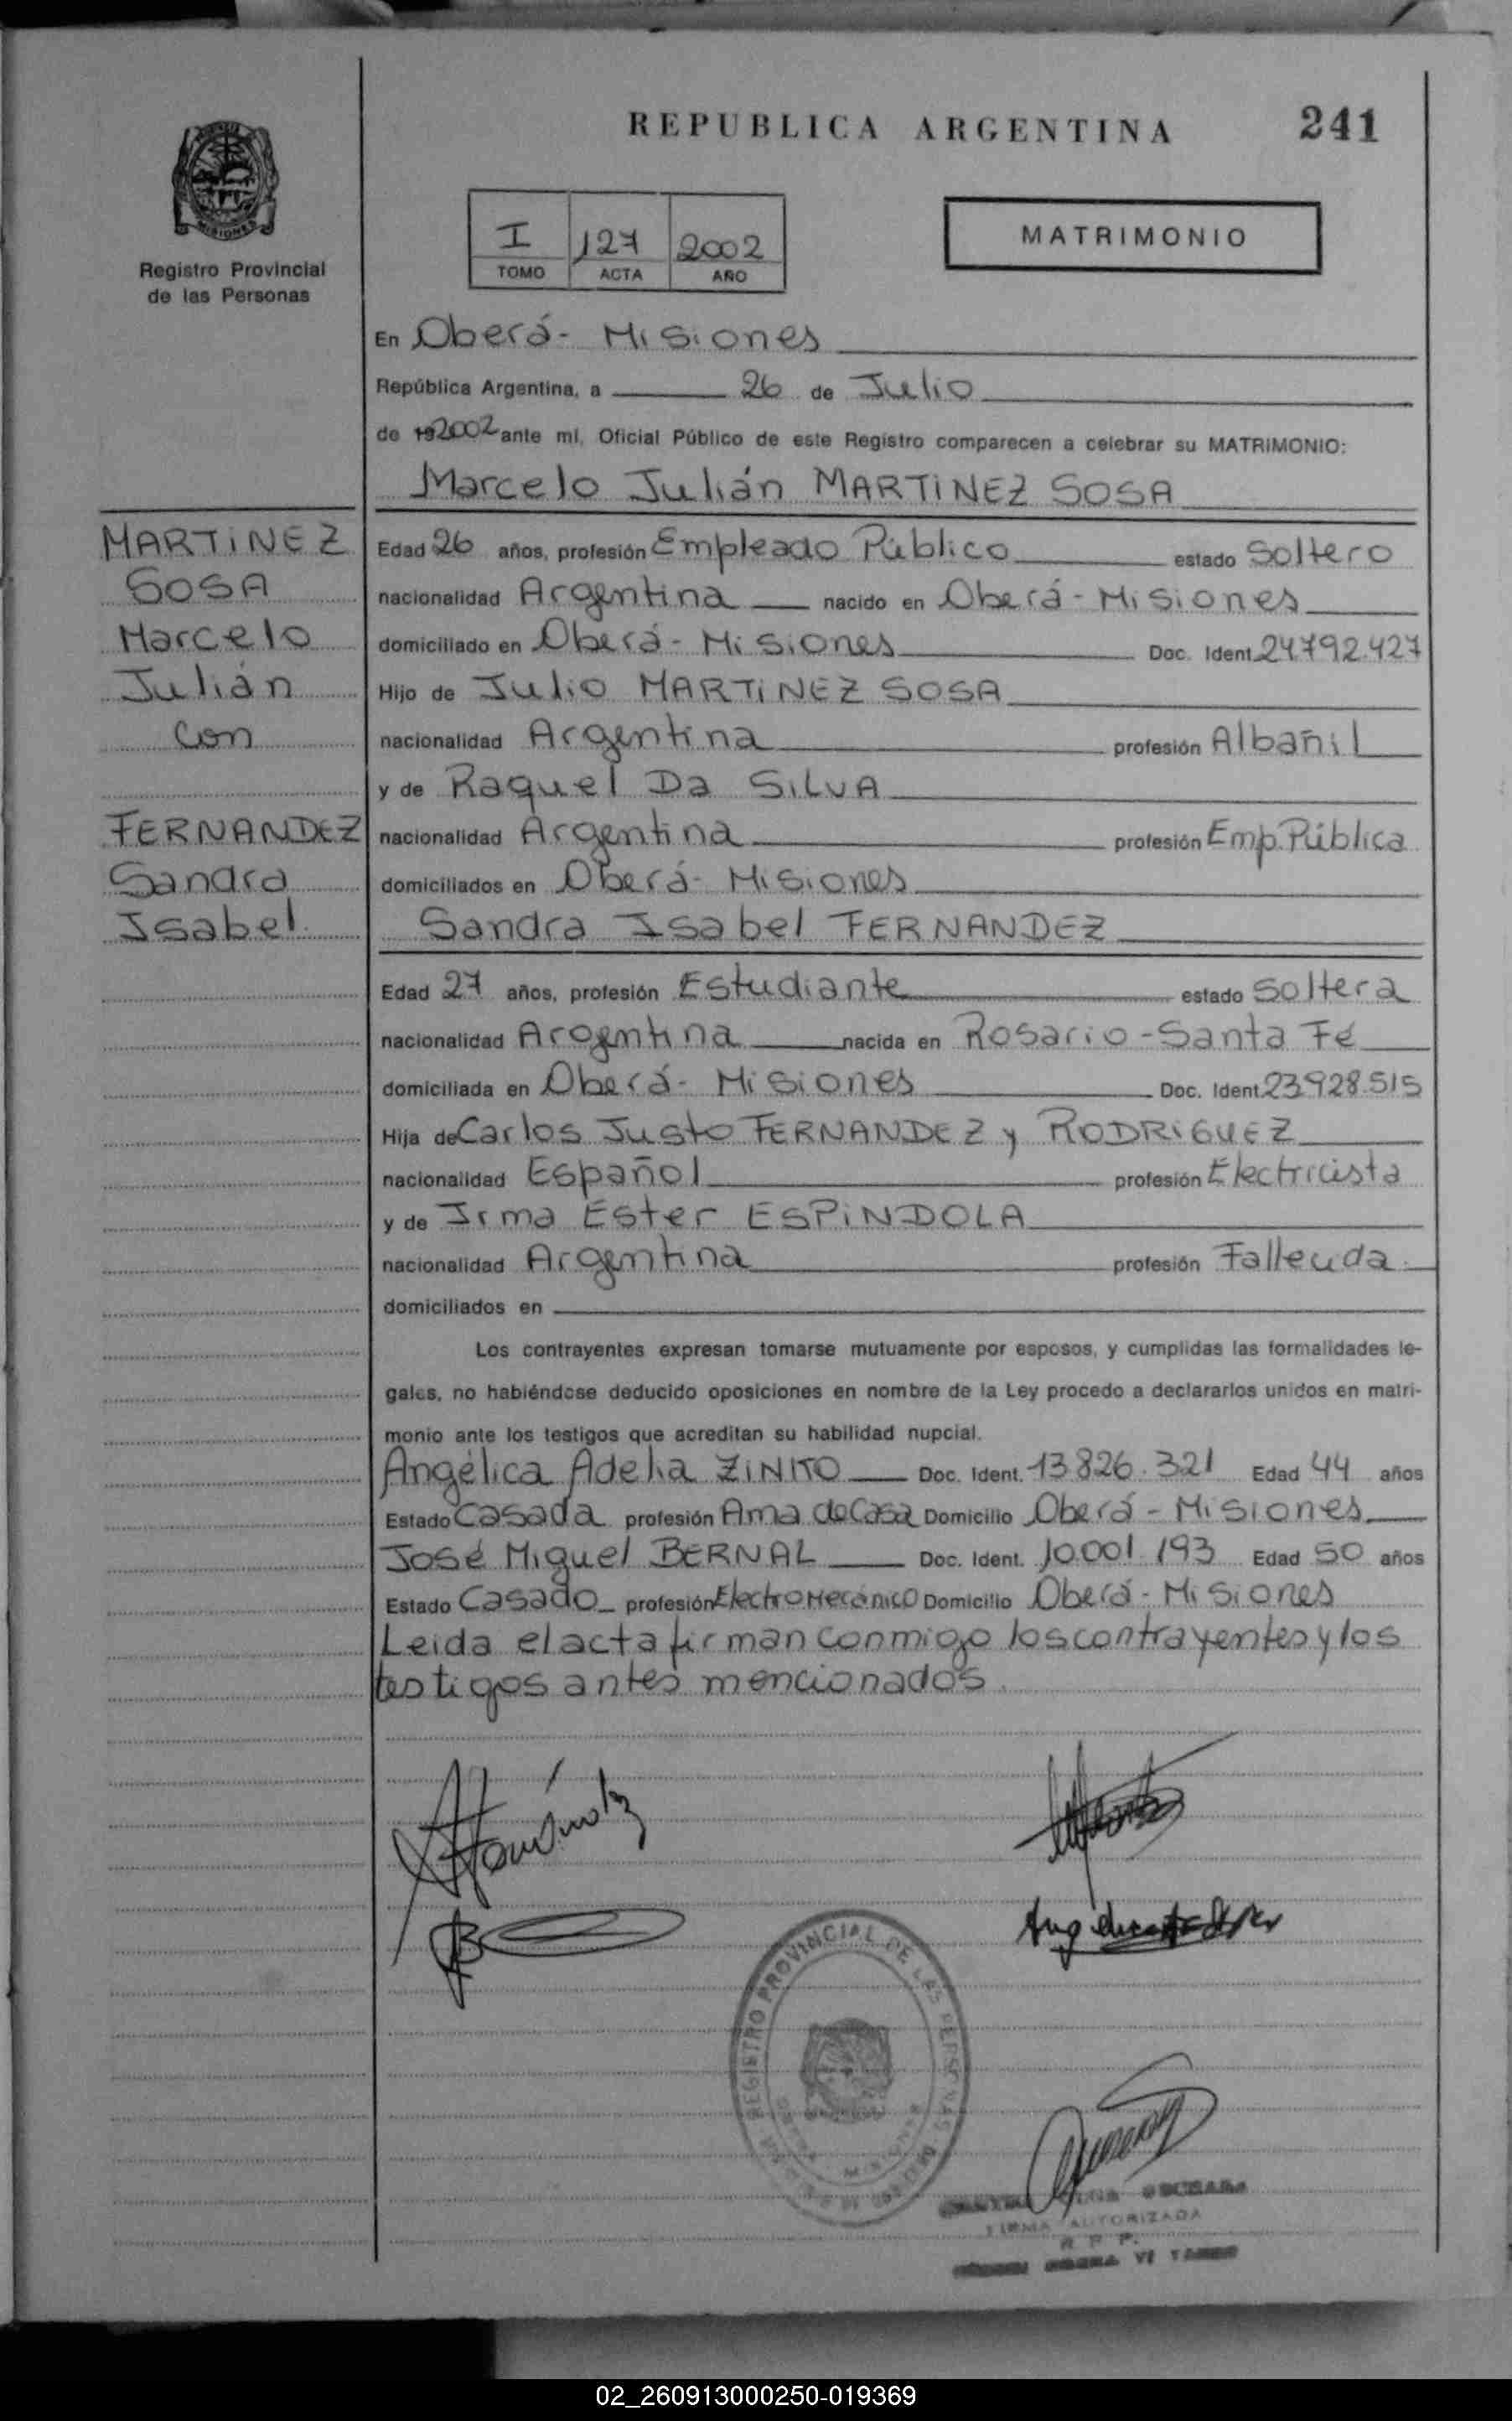 REPUBLICA ARGENTINA
241
MISIONES
Registro Provincial
de las Personas
I 127 2002
TOMO ACTA AÑO
MATRIMONIO
En Oberá- Misiones
República Argentina, a 26 de Julio
de 192002 ante mí, Oficial Público de este Registro comparecen a celebrar su MATRIMONIO:
Marcelo Julián MARTiNEZ SOSA
MARTiNEZ
SOSA
Marcelo
Julián
con
FERNANDEZ
Sandra
Isabel
Edad 26 años, profesión Empleado Público estado Soltero
nacionalidad Argentina nacido en Oberá - Misiones
domiciliado en Oberá - Misiones Doc. Ident. 24.792.427
Hijo de Julio MARTiNEZ SOSA
nacionalidad Argentina profesión Albañil
y de Raquel Da SiLVA
nacionalidad Argentina profesión Emp. Pública
domiciliados en Oberá- Misiones
Sandra Isabel FERNANDEZ
Edad 27 años, profesión Estudiante estado Soltera
nacionalidad Argentina nacida en Rosario - Santa Fé
domiciliada en Oberá- Misiones Doc. Ident. 23.928.515
Hija de Carlos Justo FERNANDEZ y RODRiGUEZ
nacionalidad Español profesión Electricista
y de Irma Ester ESPiNDOLA
nacionalidad Argentina profesión Fallecida.
domiciliados en
Los contrayentes expresan tomarse mutuamente por esposos, y cumplidas las formalidades le-
gales, no habiéndose deducido oposiciones en nombre de la Ley procedo a declararlos unidos en matri-
monio ante los testigos que acreditan su habilidad nupcial.
Angélica Adelia ZiNiTO Doc. Ident. 13.826.321 Edad 44 años
Estado Casada profesión Ama de Casa Domicilio Oberá - Misiones
José Miguel BERNAL Doc. Ident. 10.001.193 Edad 50 años
Estado Casado profesión ElectroMecánico Domicilio Oberá - Misiones
Leida el acta firman conmigo los contrayentes y los
testigos antes mencionados.
REGISTRO PROVINCIAL DE LAS PERSONAS
MISIONES
FIRMA AUTORIZADA
R. P. P.
02_260913000250-019369